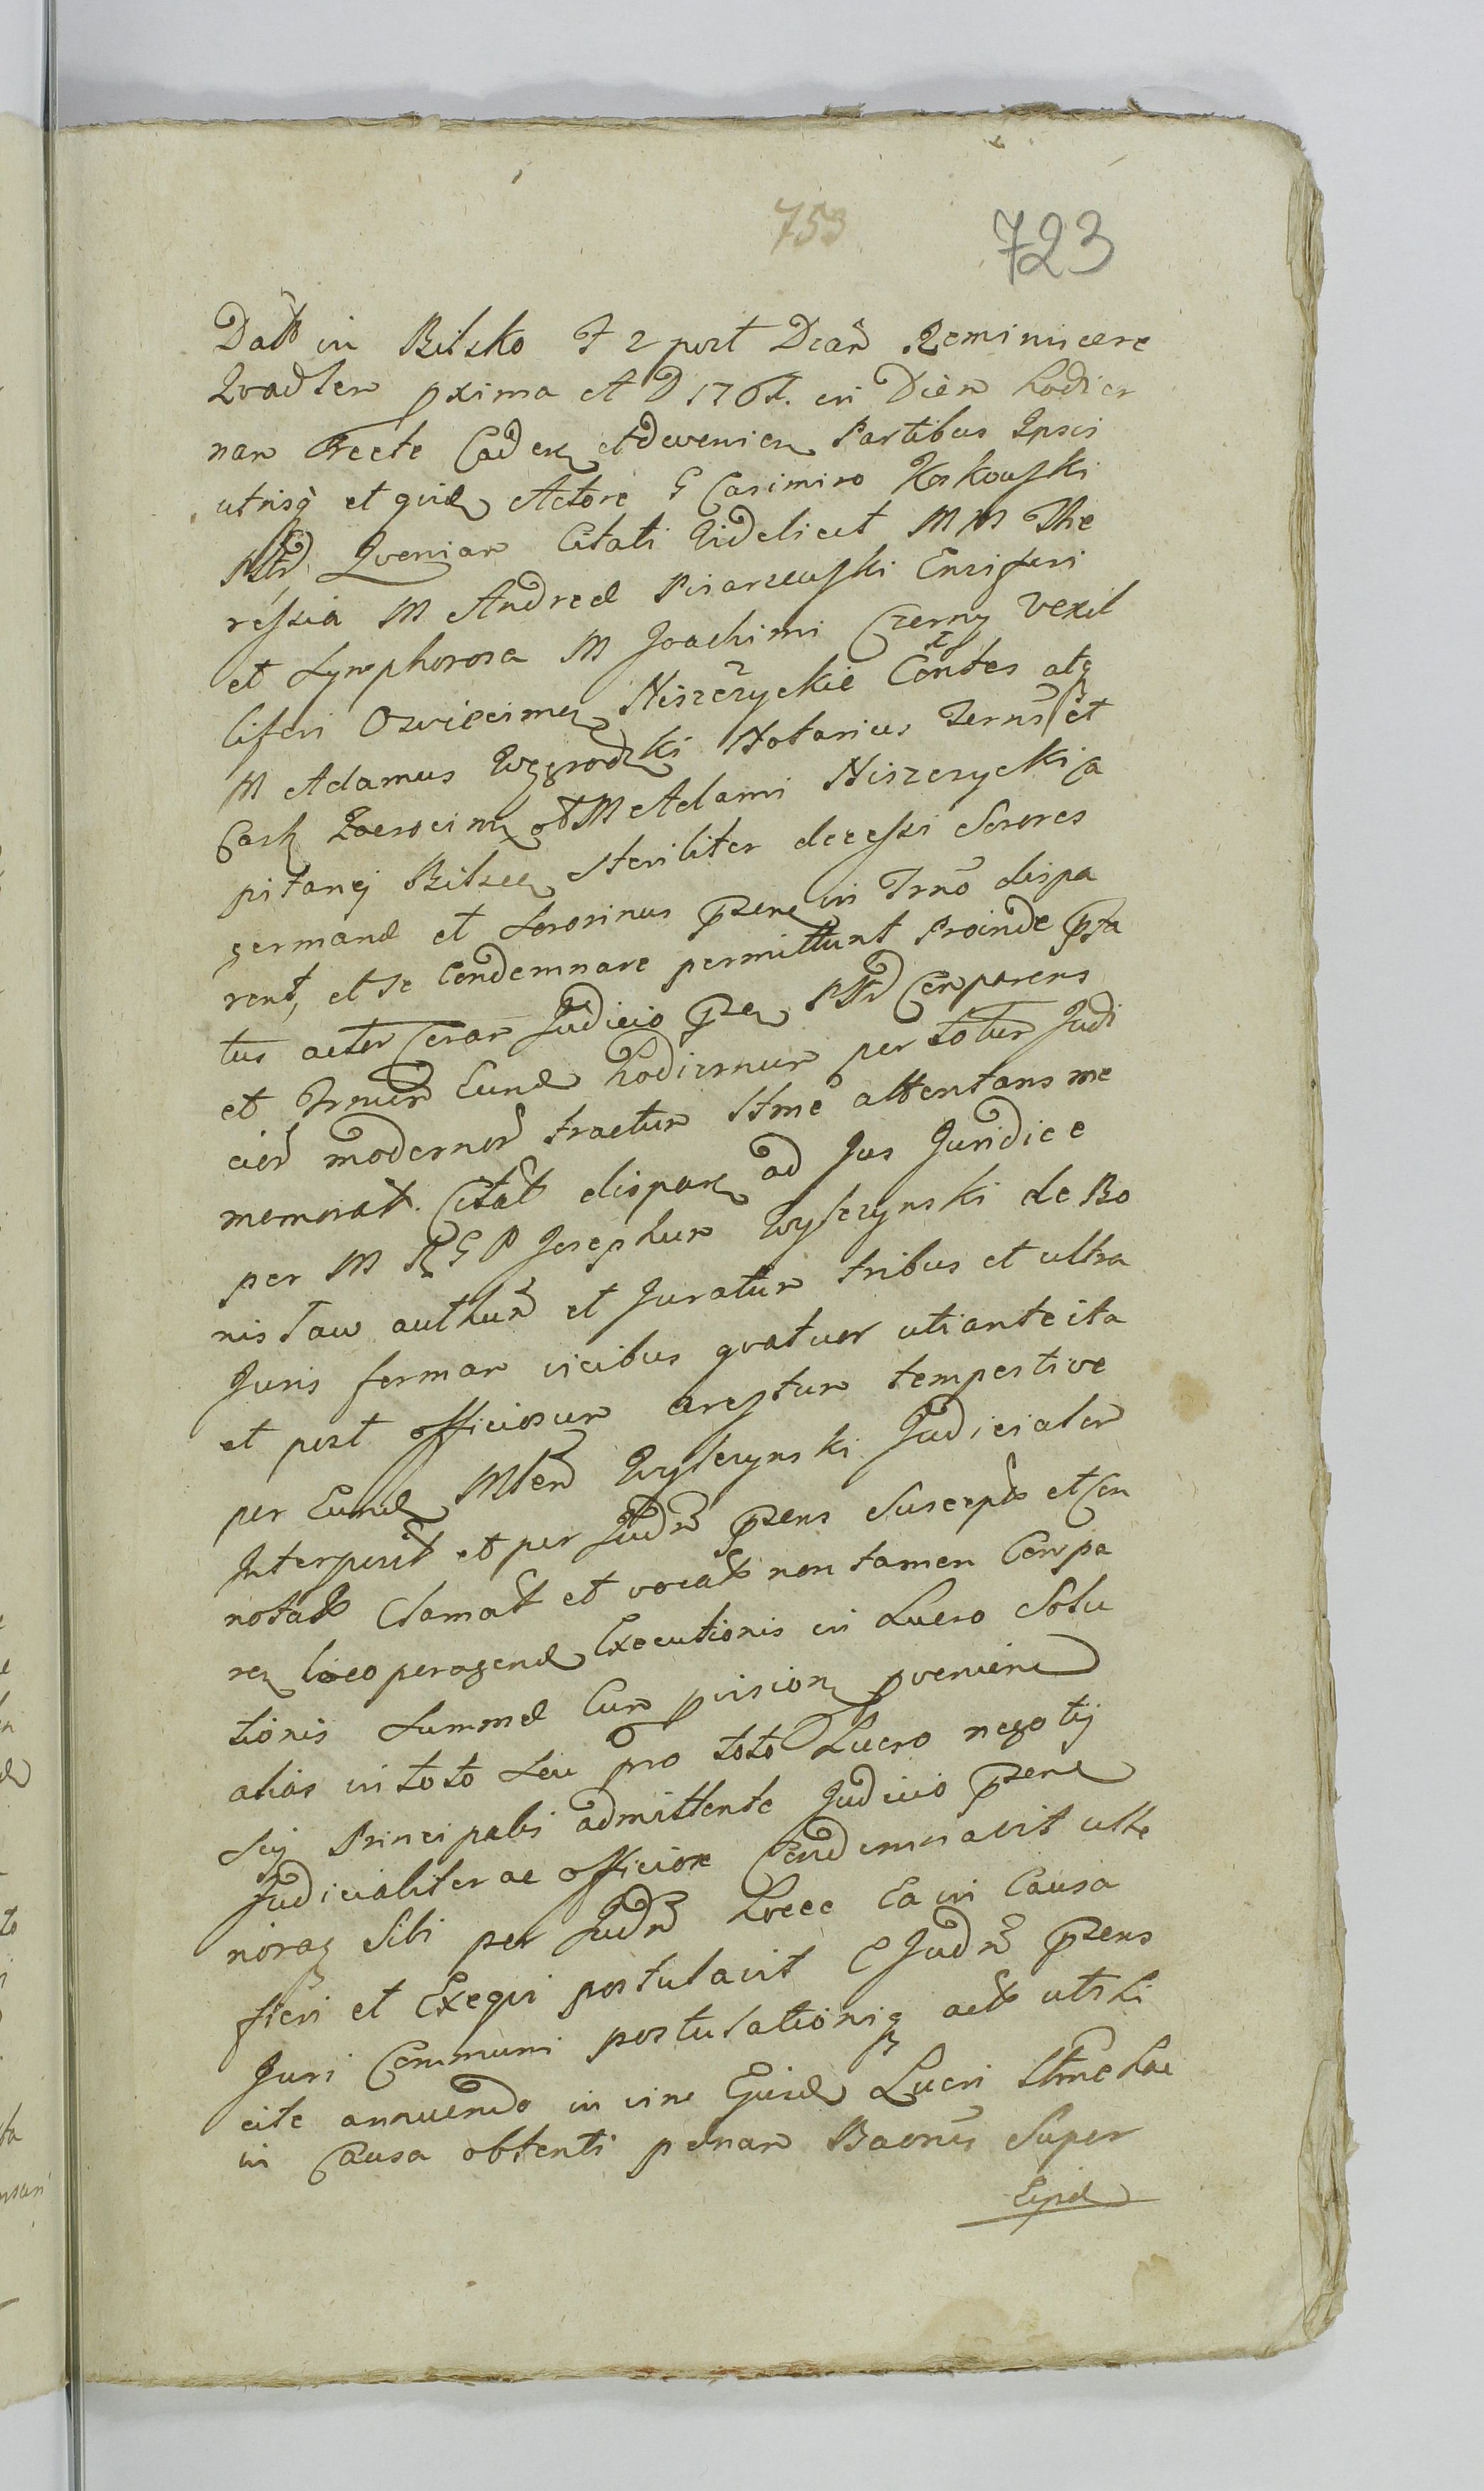 753
723
Datt in Bilsko F 2 post Dcam Reminiscere
Quadlem pxima A D 176 in Diem hodier
nam Recte Caden Adwenien Partibus Ipsis
utrisq et quid Actore G Casimiro Koskowski
Citati Videlicet M M The
ressia M Andreæ Pisarzewski Ensiferi
et Symphorosa M Joachimi Czerny Vexil
liferi Oswiecimen Niszczyckie Contes atq
M Adamus Zwgrodzki Notarius Terris et
Cast Zacrocimen M Adami Niszczycki Ca
pitanej Bilscen steriliter decessi Sorores
germanæ et Sororinus pzene in Trno dispa
rent, et se Condemnare permittunt Proinde psta
tus actor Coram Judicio pzen Comparens
et Trnum Eund hodiernum per totum Judi
ciod modernod tractum Ittme attentans me
memorat. Citat disparen ad Jus Juridice
per M G P Josephum Wyszczynski de Bo
nislaw authum et Juratum tribus et ultra
Juris formam vicibus quatuor uti ante ita
et post officiosum arestum tempestive
per Eund Mlem Wyszczynski Judicialem
Interposit et per Judm pzens Suscept et Con
notat Clamat et vocat non tamen Compa
ren loco peragend Executionis in Lucro Solu
tionis Summæ Cum pvision pvenien
alias in toto seu pro toto Lucro negotij
sui Principalis admittente Judicio pzene
Judicialiter ac officiose Condemnavit ulte
noraq Sibi per Judm hocce Ea in Causa
fieri et Exequi postulavit Judm pzens
Juri Communi postulationiq act uti li
cite annuendo in vim Ejusd Lucri Ittme hac
in Causa obtenti pænam Banis Super
Eijsd